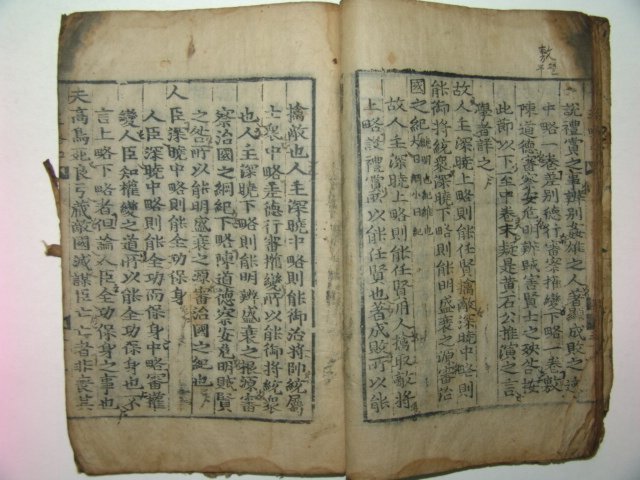 設禮賞之事辨別姦雄之人著顯成敗之迹
中略一卷差別德行審察權變下略一卷敷
陳道德審察安危明辨賊害賢士之殃咎按
此節以下至中卷末疑是黃石公推演之言
學者詳之
故人主深曉上略則能任賢擒敵深曉中略則
能御將統衆深曉下略則能明盛衰之源審治
國之紀
大曰綱小曰紀
故人主深曉上略則能任賢用人擒取敵將
上略設禮賞所以能任賢也著成敗所以能
擒敵也人主深曉中略則能御治將帥統屬
士衆中略差德行審權變所以能御將統衆
也人主深曉下略則能明辨盛衰之根源審
察治國之綱紀下略陳道德察安危明賊賢
之咎所以能明盛衰之源審治國之紀也
人臣深曉中略則能全功保身
人臣深曉中略則能全功而保身中略審權
變人臣知權變之道所以能全功保身也不
言上略下略者但論人臣全功保身之事也
夫高鳥死良弓藏敵國滅謀臣亡亡者非喪其